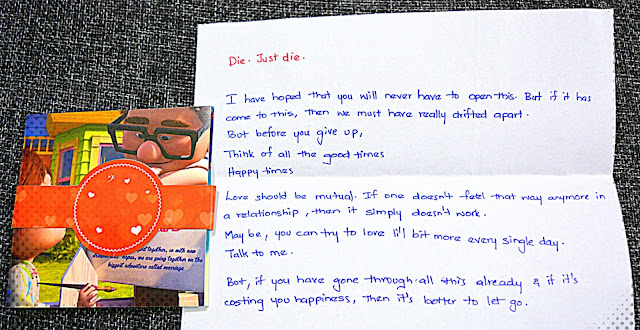 together, so with new
hopes, we are going together on the
biggest adventure called marriage
Die. Just die.
I have hoped that you will never have to open this. But if it has
come to this, then we must have really drifted apart.
But before you give up,
Think of all the good times
Happy times
Love should be mutual. If one doesn't feel that way anymore in
a relationship, then it simply doesn't work.
May be, you can try to love li'l bit more every single day.
Talk to me.
But, if you have gone through all this already & if it's
costing you happiness, Then it's better to let go.